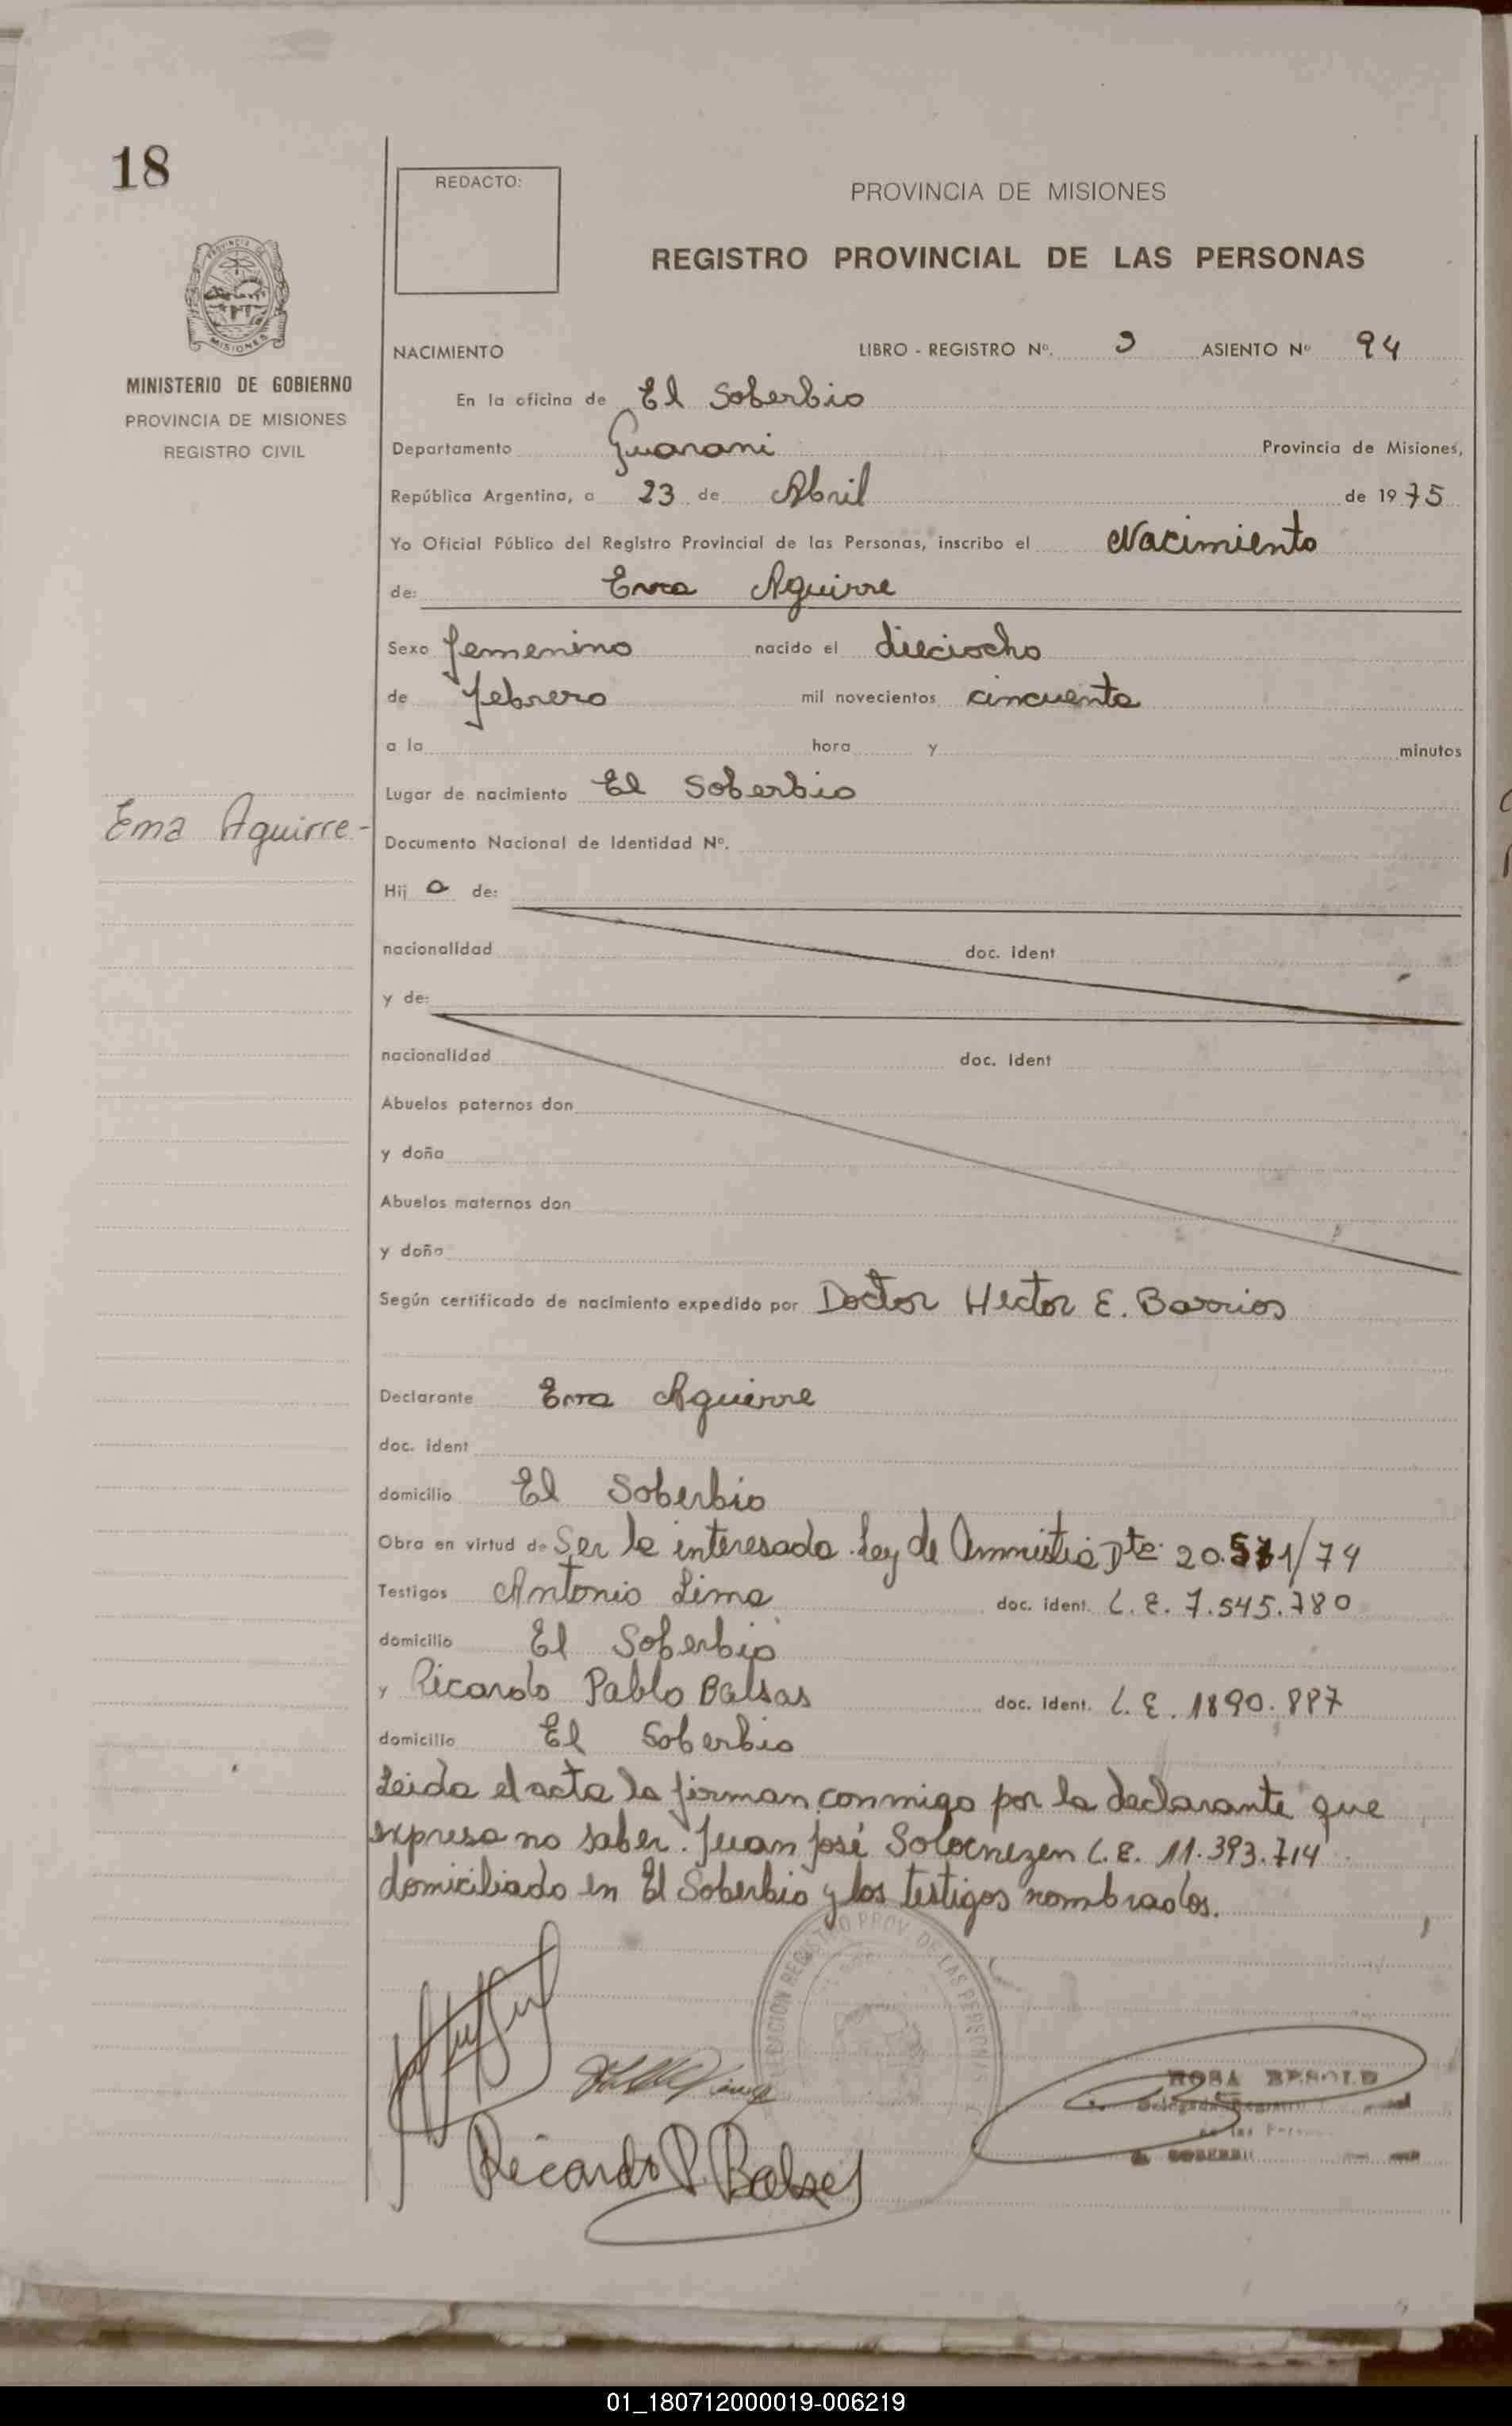 18
REDACTO:
PROVINCIA DE MISIONES
REGISTRO PROVINCIAL DE LAS PERSONAS
MISIONES
MINISTERIO DE GOBIERNO
PROVINCIA DE MISIONES
REGISTRO CIVIL
NACIMIENTO LIBRO - REGISTRO Nº. 3 ASIENTO Nº 94
En la oficina de El Soberbio
Departamento Guarani Provincia de Misiones,
República Argentina, a 23 de Abril de 1975
Yo Oficial Público del Registro Provincial de las Personas, inscribo el Nacimiento
de: Ema Aguirre
Sexo femenino nacido el dieciocho
de febrero mil novecientos cincuenta
a la hora y minutos
Lugar de nacimiento El Soberbio
Ema Aguirre-
Documento Nacional de Identidad Nº.
Hij a de:
nacionalidad doc. ident
y de:
nacionalidad doc. ident
Abuelos paternos don
y doña
Abuelos maternos don
y doña
Según certificado de nacimiento expedido por Doctor Hector E. Barrios
Declarante Ema Aguirre
doc. ident
domicilio El Soberbio
Obra en virtud de Ser la interesada. Ley de Amnistia Dto. 20.751/74
Testigos Antonio Lima doc. ident. L. E. 7.545.780
domicilio El Soberbio
y Ricardo Pablo Balsas doc. ident. L. E. 1890.887
domicilio El Soberbio
Leida el acta la firman conmigo por la declarante que
expresa no saber. Juan José L. E. 11.393.714
domiciliado en El Soberbio y los testigos nombrados.
REGISTRO PROV. DE LAS PERSONAS
Ricardo P. Balsas
ROSA BESOLD
01_180712000019-006219